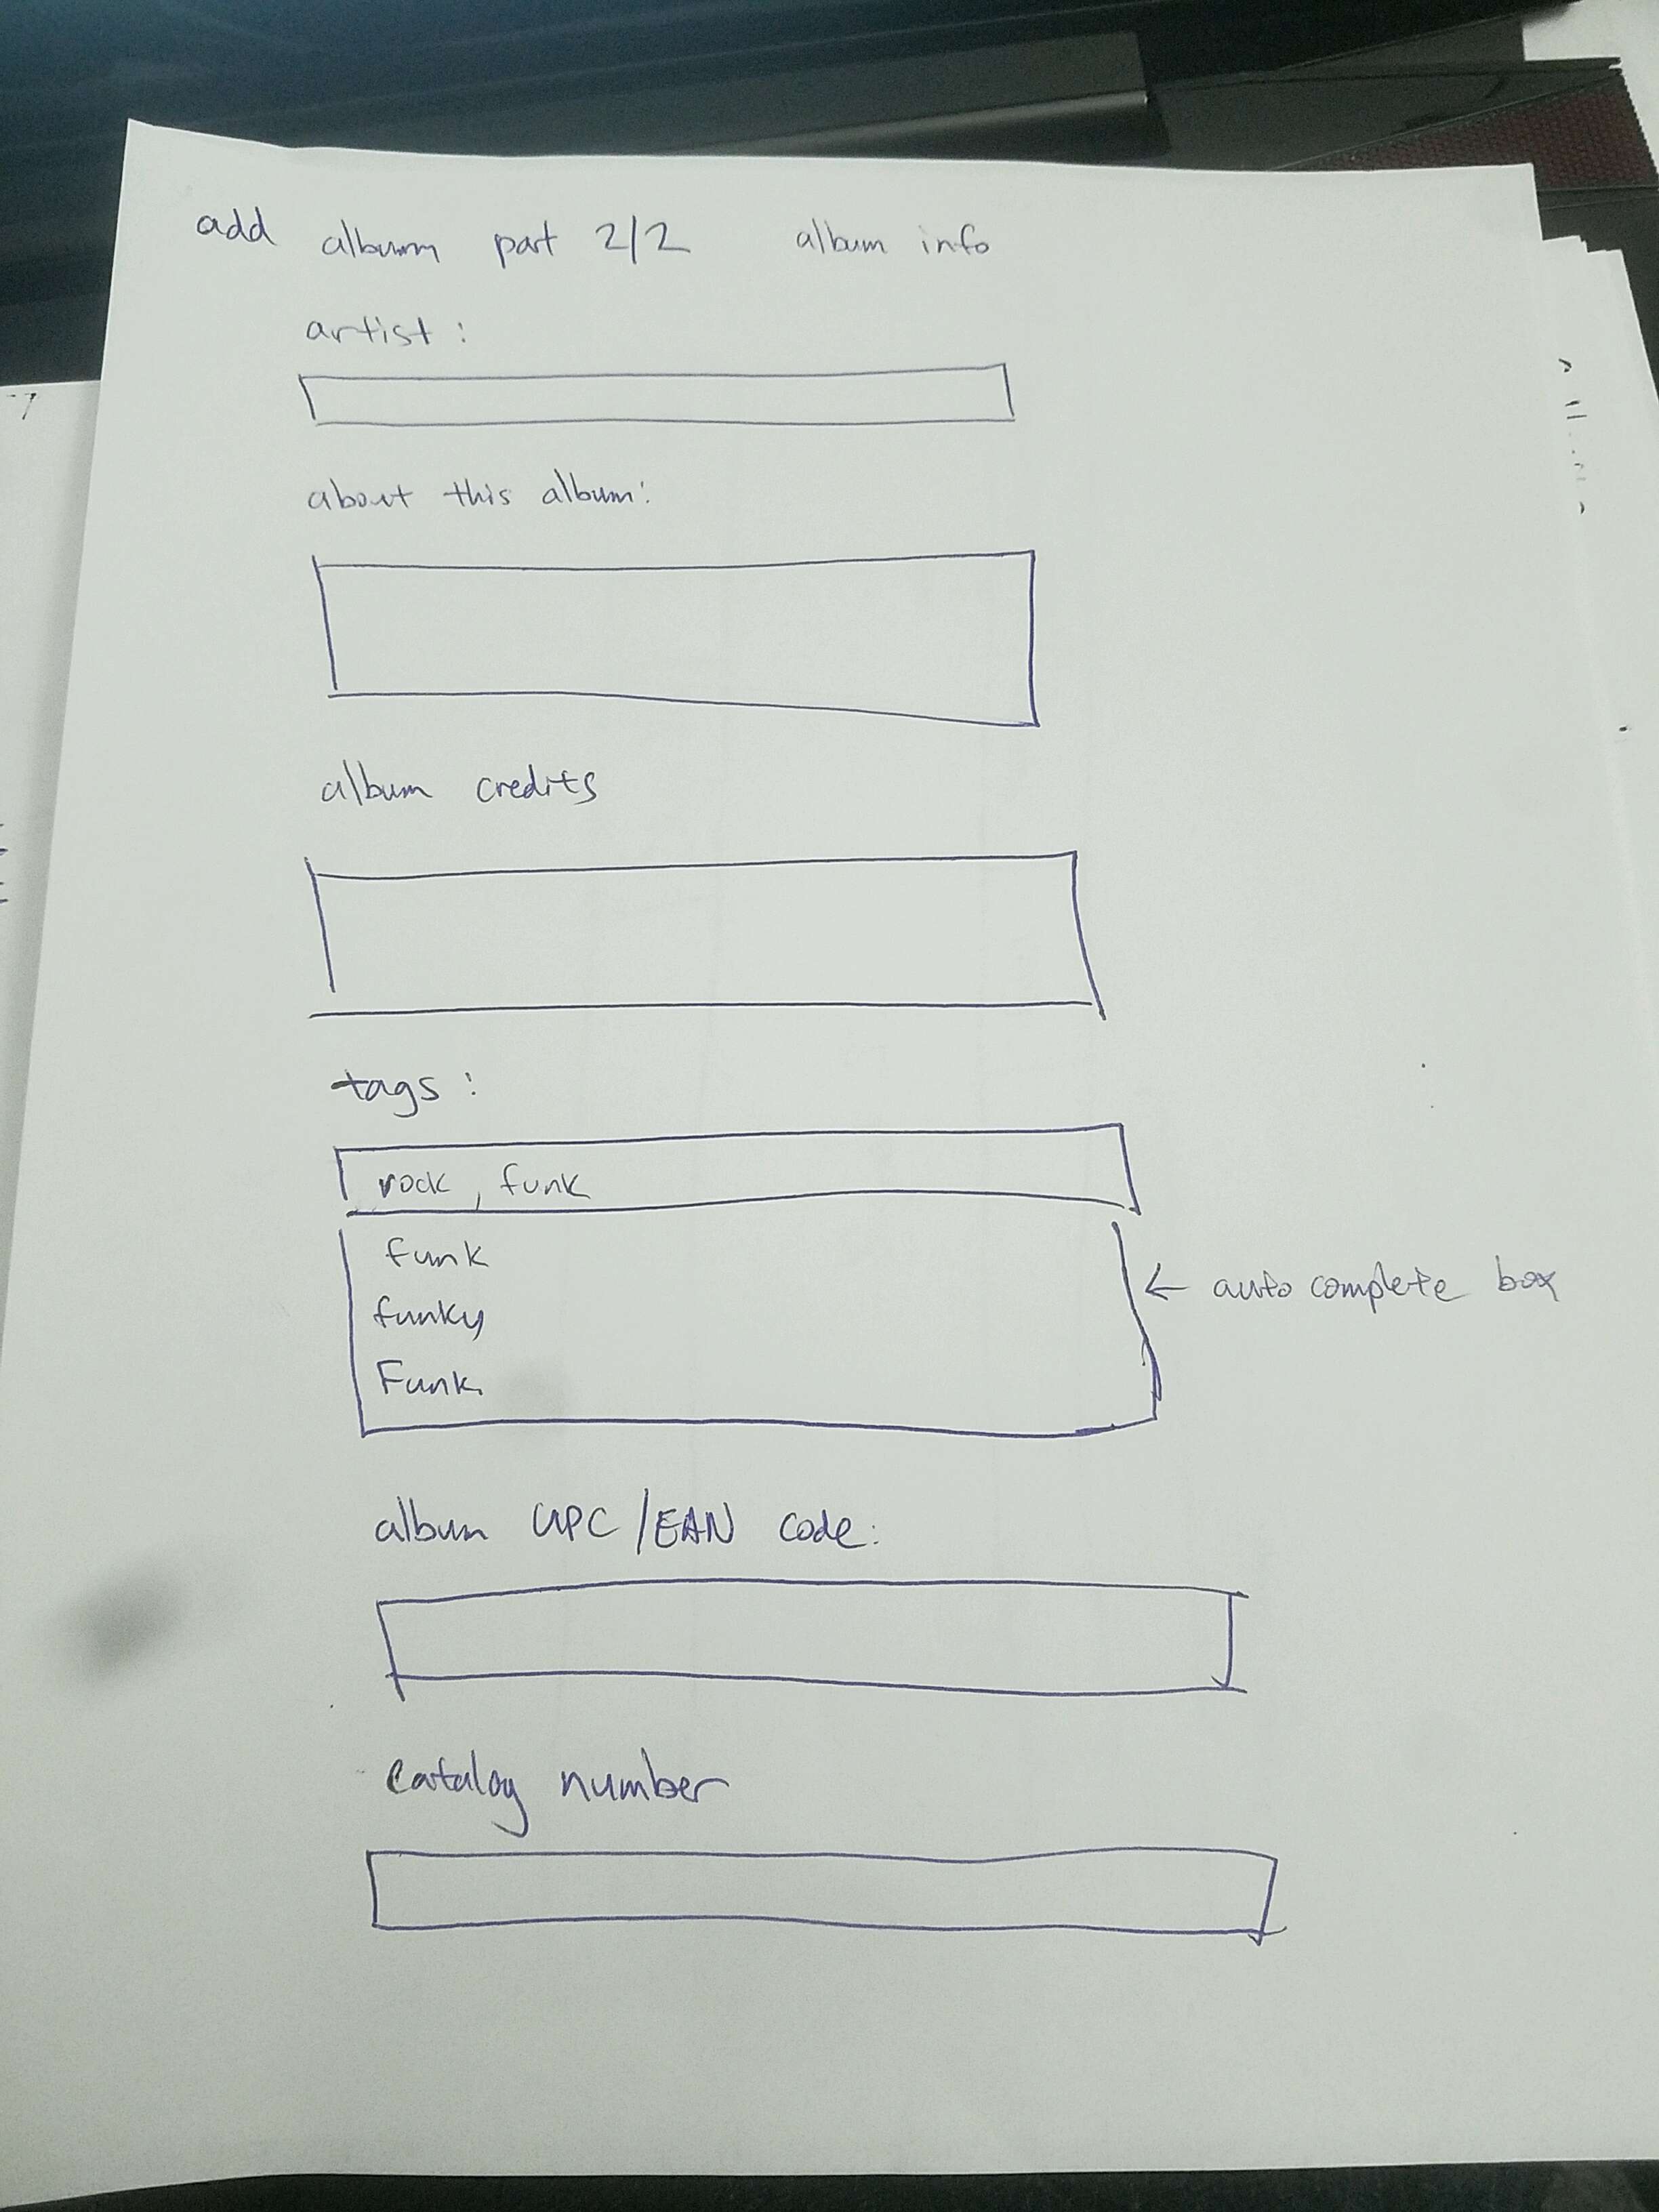 add album part 2/2 album info
artist :
about this album:
album credits
tags :
rock , funk
funk
funky
Funk
← auto complete box
album UPC/EAN code:
catalog number